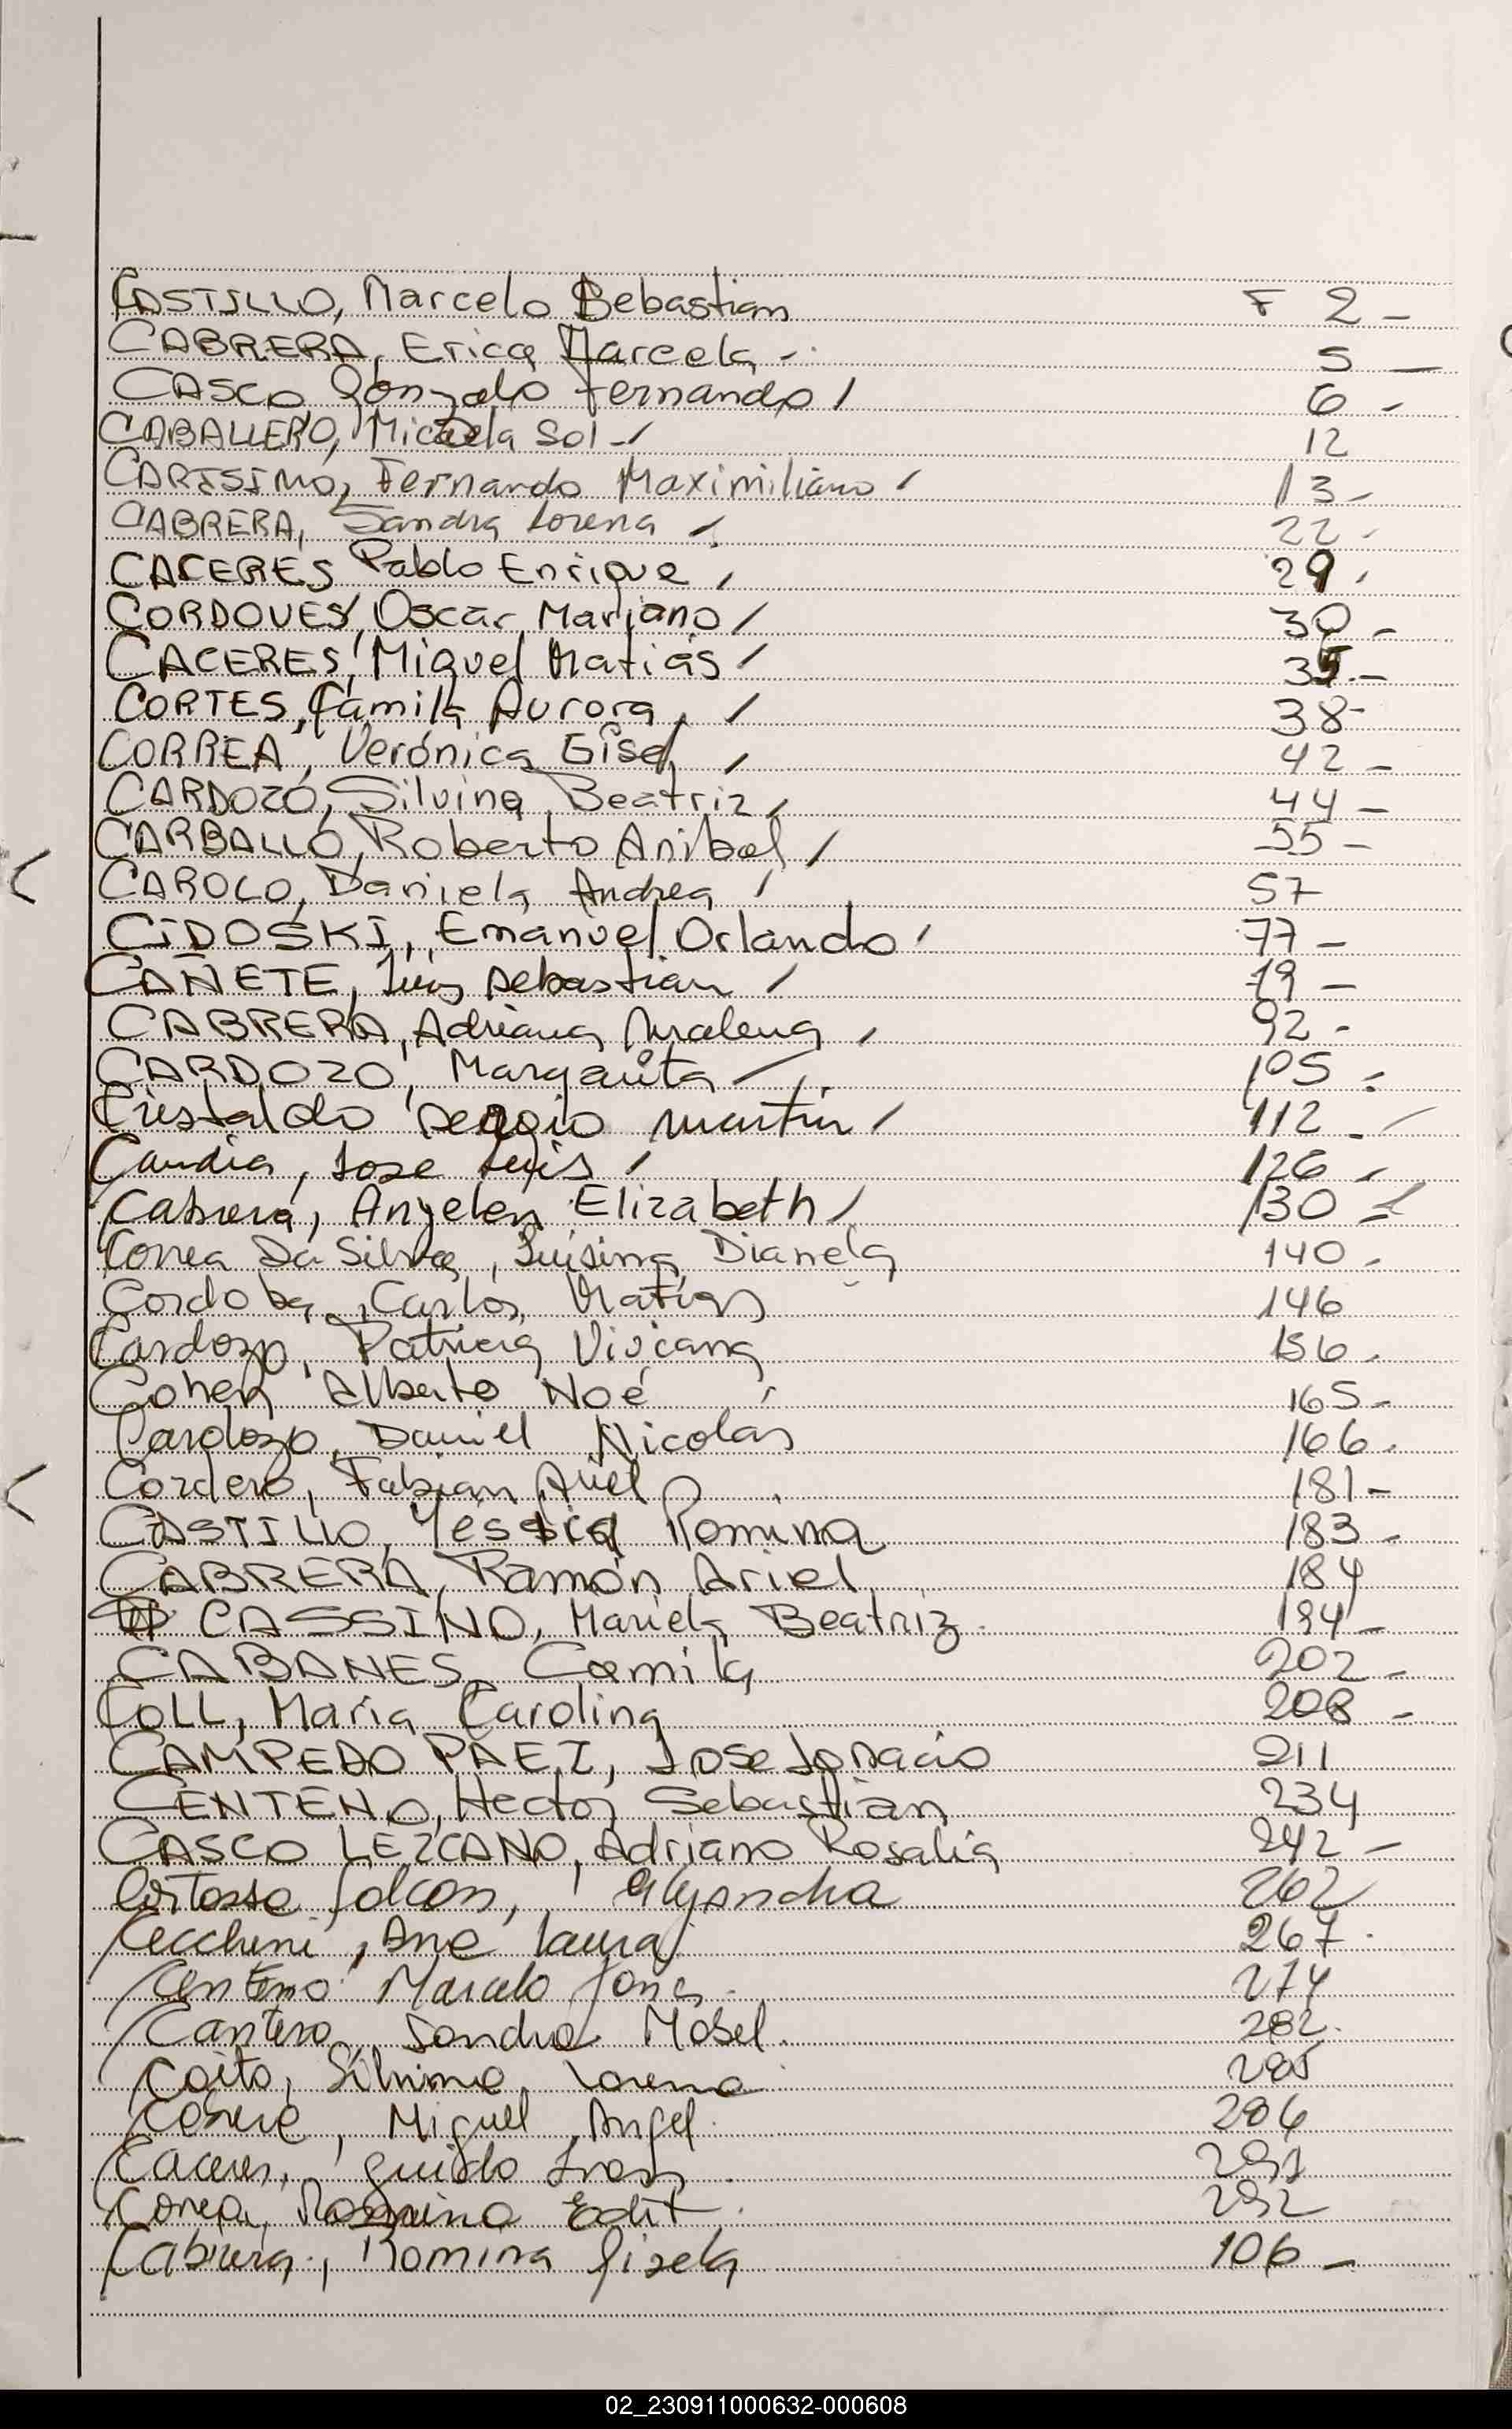 CASTILLO, Marcelo Sebastian F 2 -
CABRERA, Erica Marcela - 5 -
CASCO Gonzalo Fernando / 6 -
CABALLERO, Micaela Sol - / 12
CARISIMO, Fernando Maximiliano / 13 -
CABRERA, Sandra Lorena / 22 -
CACERES Pablo Enrique / 29 -
CORDOVES, Oscar Mariano / 30 -
CACERES, Miguel Matias / 35 -
CORTES, Camila Aurora / 38 -
CORREA, Verónica Gisel / 42 -
CARDOZO, Silvina Beatriz / 44 -
CARBALLO, Roberto Anibal / 55 -
CAROLO, Daniela Andrea / 57
CIDOSKI, Emanuel Orlando / 77 -
CAÑETE, Luis Sebastian / 79 -
CABRERA, Adriana / 92 -
CARDOZO, Margarita / 105 -
Cristaldo Sergio Martin / 112 -
Candia, Jose Luis / 126 -
Cabrera, Angelen Elizabeth / 130 -
Correa Da Silva, Luisina Dianela 140 -
Cordoba, Carlos Matias 146
Cardozo, Patricia Viviana 156 -
Cohen Alberto Noé 165 -
Cardozo, Daniel Nicolás 166 -
Cordero, Fabian Ariel 181 -
CASTILLO, Yessica Romina 183 -
CABRERA, Ramón Ariel 184
CASSINO, Mariela Beatriz 194 -
CABANES, Camila 202 -
COLL, Maria Carolina 208 -
CAMPEDO PAEZ, Jose Ignacio 211
CENTENO, Hector Sebastian 234
CASCO LEZCANO, Adriano Rosalia 242 -
Falcon, Alejandra 262
Cecchini, Ana Laura 267
Centeno Marcelo 274
Cantero, Sandra Mabel 282
Coito, Silvina Lorena 285
Miguel Angel 286
Caceres, Guido Ivan 291
Correa, Romina Edit 292
Cabrera, Romina Gisela 106 -
02_230911000632-000608